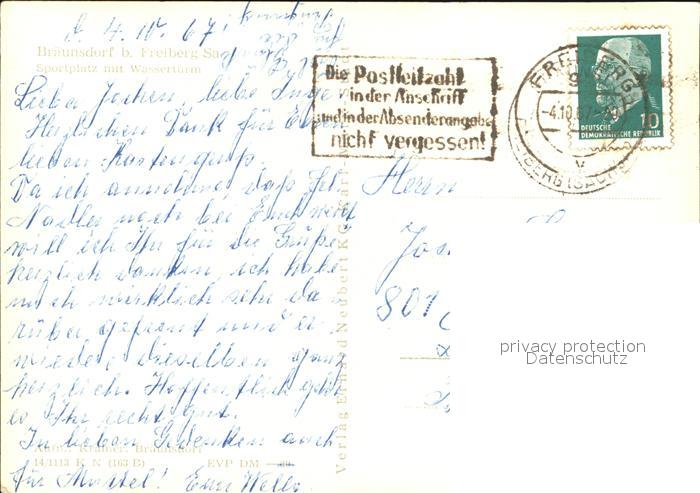 4. 10. 67.
Bräunsdorf b. Freiberg Sa
Sportplatz mit Wasserturm
Die Postleitzahl
in der Anschrift
und in der Absenderangabe
nicht vergessen!
FREIBERG
-4.10.67-20
FREIBERG (SACHS
10
DEUTSCHE
DEMOKRATISCHE REPUBLIK
Lieber Jochen, liebe Inge
Herzlichen Dank für Euren
lieben Kartengruß.
Da ich annehme, daß Frl.
Nadler noch bei Euch weilt
will ich Ihr für die Grüße
herzlich danken, ich habe
mich wirklich sehr da
rüber gefreut und er
wiedere dieselben ganz
herzlich. Hoffentlich geht
es Ihr recht gut.
In lieben Gedenken auch
für Muttel! Eure Welly
Aufn.: Krämer, Bräunsdorf
14/1113 K N (163 B) EVP DM
Verlag Erhard Neubert KG, Karl-Marx-Stadt
Herrn
Joc
801
privacy protection
Datenschutz